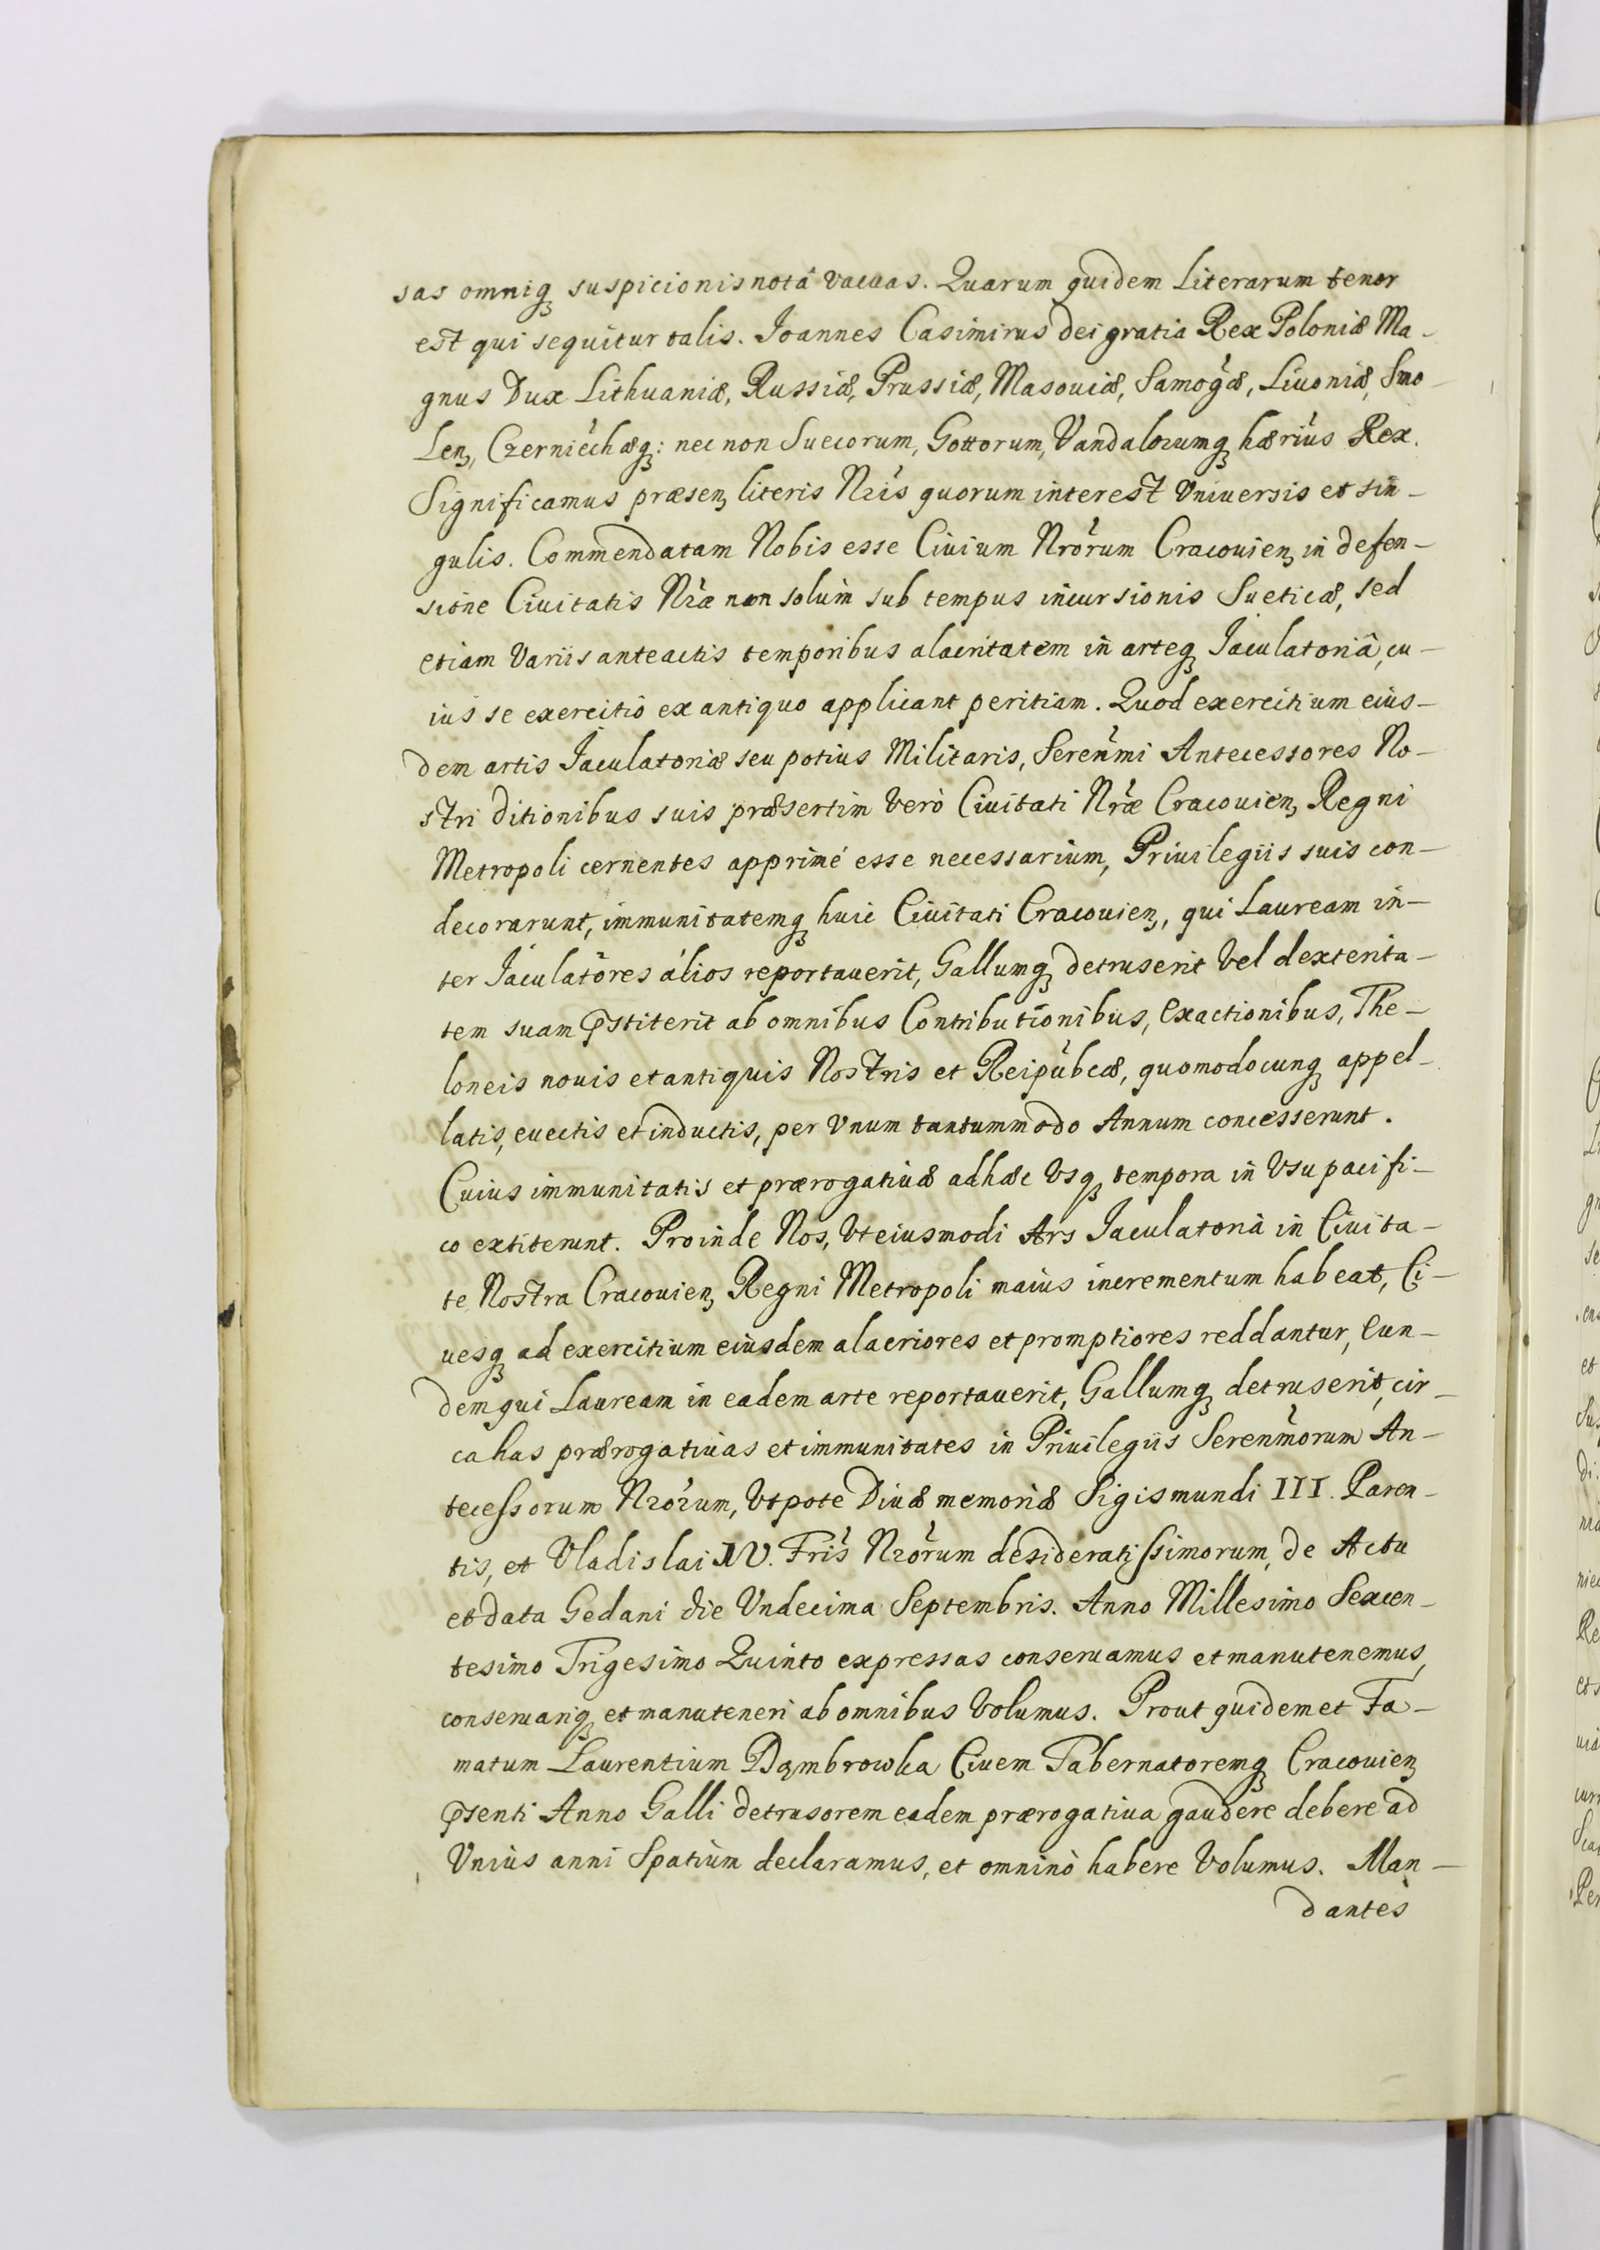 sas omniq; suspicionis notâ vacuas. Quarum quidem Literarum tenor
est qui sequitur talis. Joannes Casimirus dei gratia Rex Poloniæ Ma-
gnus Dux Lithuaniæ, Russiæ, Prussiæ, Masouiæ, Samogæ, Liuoniæ, Smo
Len, Czerniechæq;: nec non Suecorum, Gottorum, Vandalorumq; hærius Rex.
Significamus præsen, literis Nris quorum interest Vniuersis et sin-
gulis. Commendatam Nobis esse Ciuium Nrorum Cracouien, in defen-
sione Ciuitatis Nræ non solum sub tempus incursionis Sueticæ, sed
etiam Variis anteactis temporibus alacritatem in arteq; Jaculatoriâ, cu-
ius se exercitio ex antiquo applicant peritiam. Quod exercitium eius-
dem artis Jaculatoriæ seu potius Militaris, Serenmi Antecessores No-
stri ditionibus suis præsertim verò Ciuitati Nræ Cracouien, Regni
Metropoli cernentes apprimé esse necessarium, Priuilegiis suis con-
decorarunt, immunitatemq; huic Ciuitati Cracouien, qui Lauream in-
ter Jaculatores alios reportauerit, Gallumq; detruserit Vel dexterita-
tem suam pstiterit ab omnibus Contributionibus, Exactionibus, The-
loneis nouis et antiquis Nostris et Reipubcæ, quomodocunq; appel-
latis, euectis et inductis, per Vnum tantummodo Annum concesserunt.
Cuius immunitatis et prærogatiuæ adhæc Vsq; tempora in Vsu pacifi-
co extiterunt. Proinde Nos, Vt eiusmodi Ars Jaculatoria in Ciuita-
te Nostra Cracouien, Regni Metropoli maius incrementum habeat, Ci-
uesq; ad exercitium eiusdem alacriores et promptiores reddantur, Eun-
dem qui Lauream in eadem arte reportauerit, Gallumq; detruserit, cir-
ca has prærogatiuas et immunitates in Priuilegiis Serenmorum An-
tecessorum Nrorum, Vtpote Diuæ memoriæ Sigismundi III. Paren-
tis, et Vladislai IV. Fris Nrorum desideratissimorum, de Actu
et data Gedani die Vndecima Septembris. Anno Millesimo Sexcen-
tesimo Trigesimo Quinto expressas conseruamus et manutenemus,
conseruariq; et manuteneri ab omnibus Volumus. Prout quidem et Fa-
matum Laurentium Dąmbrowka Ciuem Tabernatoremq; Cracouien,
psenti Anno Galli detrusorem eadem prærogatiua gaudere debere ad
Vnius anni Spatium declaramus, et omninò habere Volumus. Man-
dantes